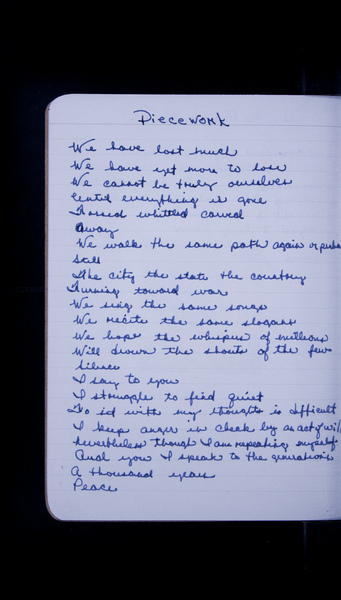 Piecework
We have lost much
We have yet more to lose
We cannot be truly ourselves
Until everything is gone
Tossed whittled carved
away
We walk the same path again or
Still
The city the state the country
Turning toward war
We sing the same songs
We recite the same slogans
We hope the whispers of millions
Will drown the shouts of the few
Silence
I say to you
I struggle to find quiet
To sit with my thoughts is difficult
I keep anger in check by an act of will
Nevertheless though I am repeating myself
And you I speak to the generations
A thousand years
Peace